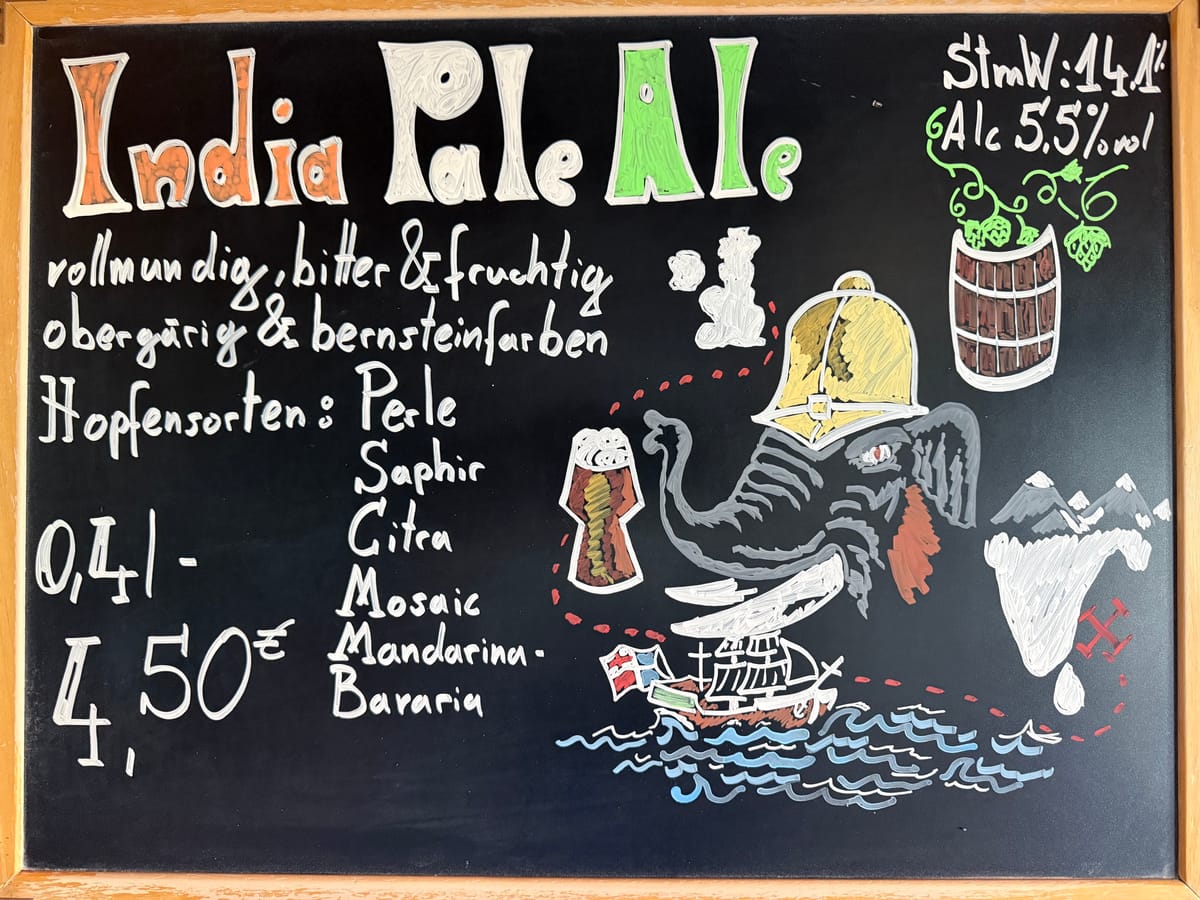 India Pale Ale
StmW: 14.1%
Alc 5,5%vol
vollmundig, bitter & fruchtig
obergärig & bernsteinfarben
Hopfensorten: Perle
Saphir
Citra
Mosaic
Mandarina-
Bavaria
0,4l-
4,50€